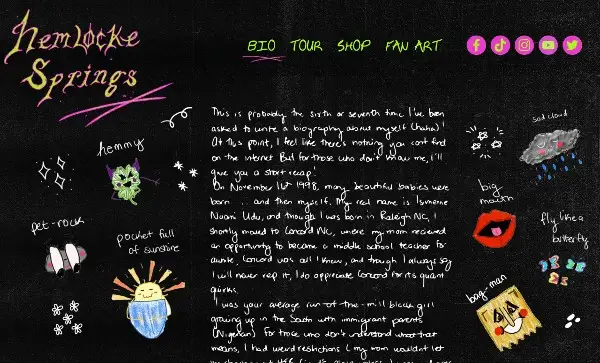 hemlocke
Springs
BIO TOUR SHOP FAN ART
This is probably the sixth or seventh time I've been
asked to write a biography about myself (haha)!
At this point, I feel like there's nothing you cant find
on the internet But for those who don't know me, I'll
give you a short recap!
On November 16th 1998, many beautiful babies were
born ... and then myself. My real name is Isimeme
Naomi Udu, and though I was born in Raleigh NC, I
shortly moved to Concord NC, where my mom recieved
an opportunity to become a middle school teacher for
awhile, Concord was all I knew, and though I always say
I will never rep it, I do appreciate Concord for its quaint
quirks.
I was your average run-of-the-mill black girl
growing up in the South with immigrant parents
(Nigerian). For those who don't understand what that
means, I had weird restrictions (my mom wouldn't let
hemmy
pet-rock
pocket full
of sunshine
sad cloud
big
mouth
fly like a
butterfly
bag-man